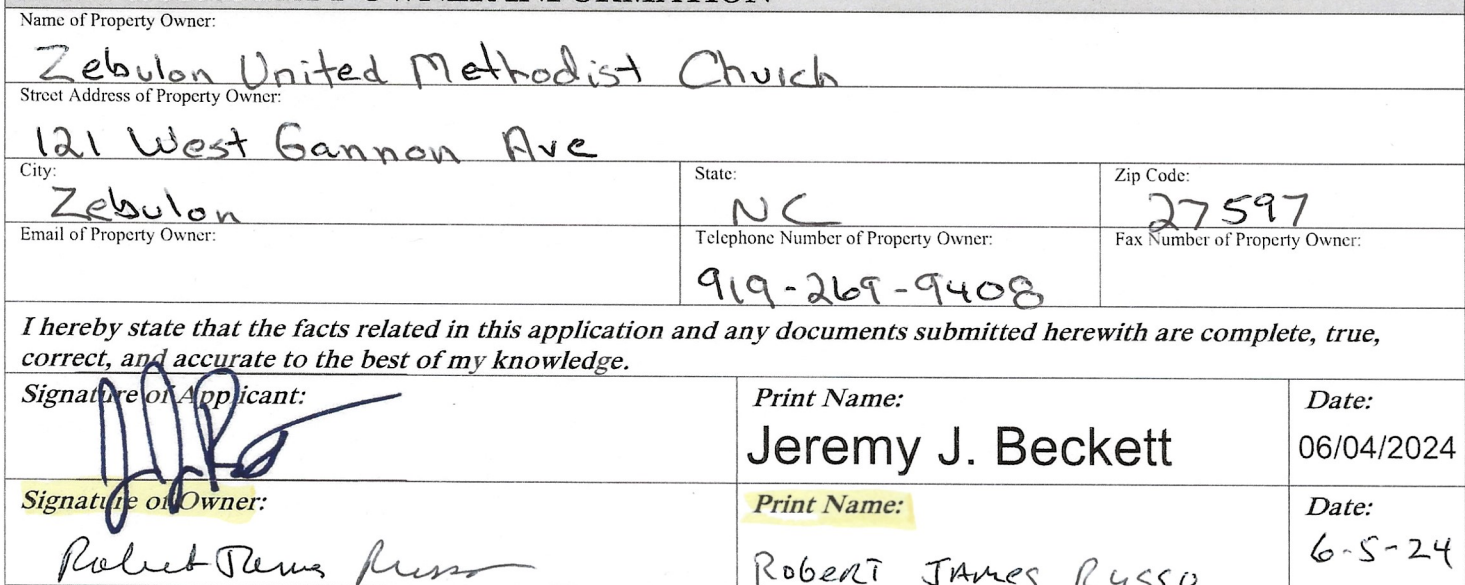 OWNER INFORMATION
Name of Property Owner:
Zebulon United Methodist Church
Street Address of Property Owner:
121 West Gannon Ave
City: State: Zip Code:
Zebulon NC 27597
Email of Property Owner: Telephone Number of Property Owner: Fax Number of Property Owner:
919-269-9408
I hereby state that the facts related in this application and any documents submitted herewith are complete, true,
correct, and accurate to the best of my knowledge.
Signature of Applicant: Print Name: Date:
Jeremy J. Beckett 06/04/2024
Signature of Owner: Print Name: Date:
Robert James Russo ROBERT JAMES RUSSO 6-5-24